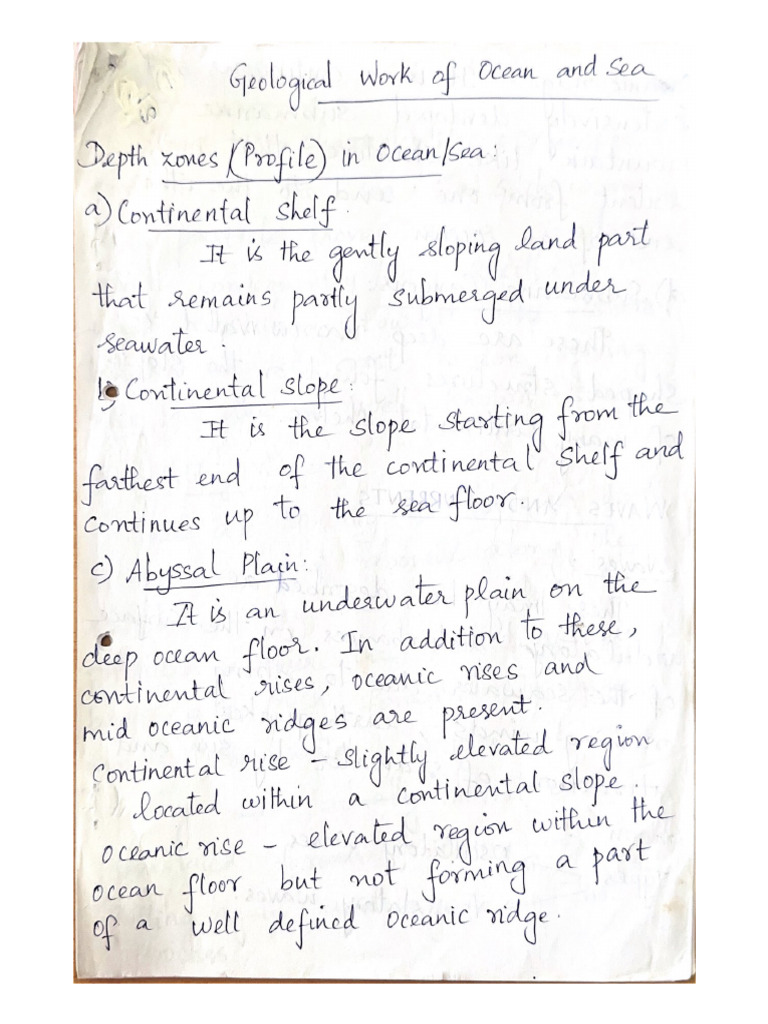 Geological Work of Ocean and Sea
Depth zones (Profile) in Ocean/Sea:
a) Continental Shelf.
It is the gently sloping land part
that remains partly submerged under
seawater.
b) Continental Slope:
It is the slope starting from the
farthest end of the continental Shelf and
continues up to the sea floor.
c) Abyssal Plain:
It is an underwater plain on the
deep ocean floor. In addition to these,
continental rises, oceanic rises and
mid oceanic ridges are present.
Continental rise - Slightly elevated region
located within a continental slope.
Oceanic rise - elevated region within the
ocean floor but not forming a part
of a well defined oceanic ridge.